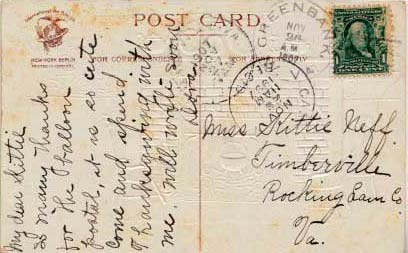 POST CARD
NEW YORK BERLIN
FOR CORRESPONDENCE
FOR
GREENBANK
NOV
26
A.M.
My dear Kittie
So many thanks
for the Halloen
postal, it is so cute
Come and spend
Thanksgiving with
me. will write soon
Miss Kittie Neff.
Timberville
Rockingham Co.
Va.